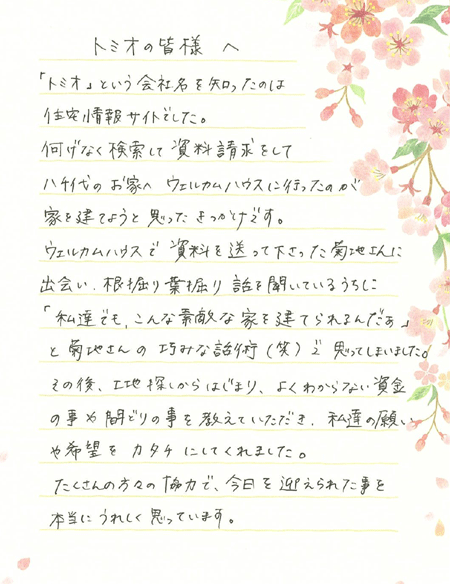 トミオの皆様 へ
「トミオ」という会社名を知ったのは
住宅情報サイトでした。
何げなく検索して資料請求をして
八千代のお家へ ウェルカムハウスに行ったのが
家を建てようと思ったきっかけです。
ウェルカムハウスで資料を送って下さった菊地さんに
出会い、根掘り葉掘り話を聞いているうちに
「私達でも、こんな素敵な家を建てられるんだぁ」
と菊地さんの巧みな話術(笑)で思ってしまいました。
その後、土地探しからはじまり、よくわからない資金
の事や間どりの事を教えていただき、私達の願い
や希望をカタチにしてくれました。
たくさんの方々の協力で、今日を迎えられた事を
本当にうれしく思っています。